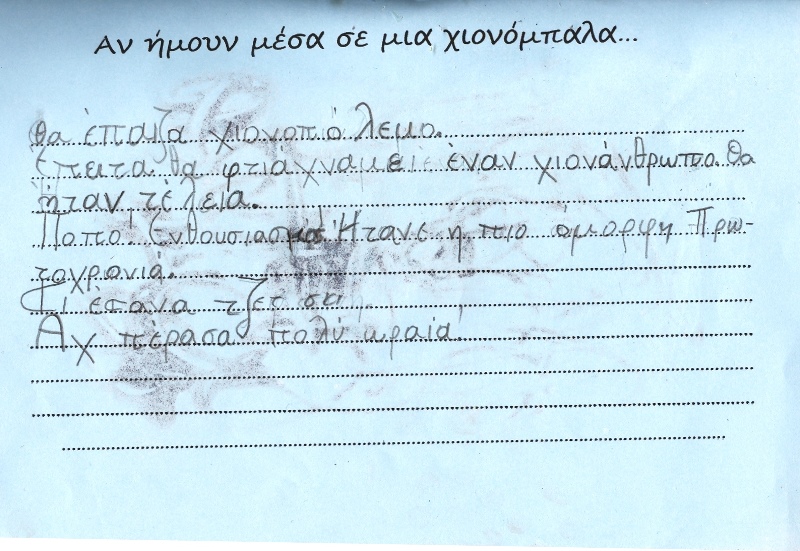 Αν ήμουν μέσα σε μια χιονόμπαλα...
θα έπαιζα χιονοπό λεμο.
έπειτα θα φτιάχναμε έναν χιονάνθρωπο. θα
ήταν τέλεια.
Ποπό! Ενθουσιασμό! Ήτανε η πιο όμορφη Πρω-
τοχρονιά.
Αχ πέρασα πολύ ωραία!